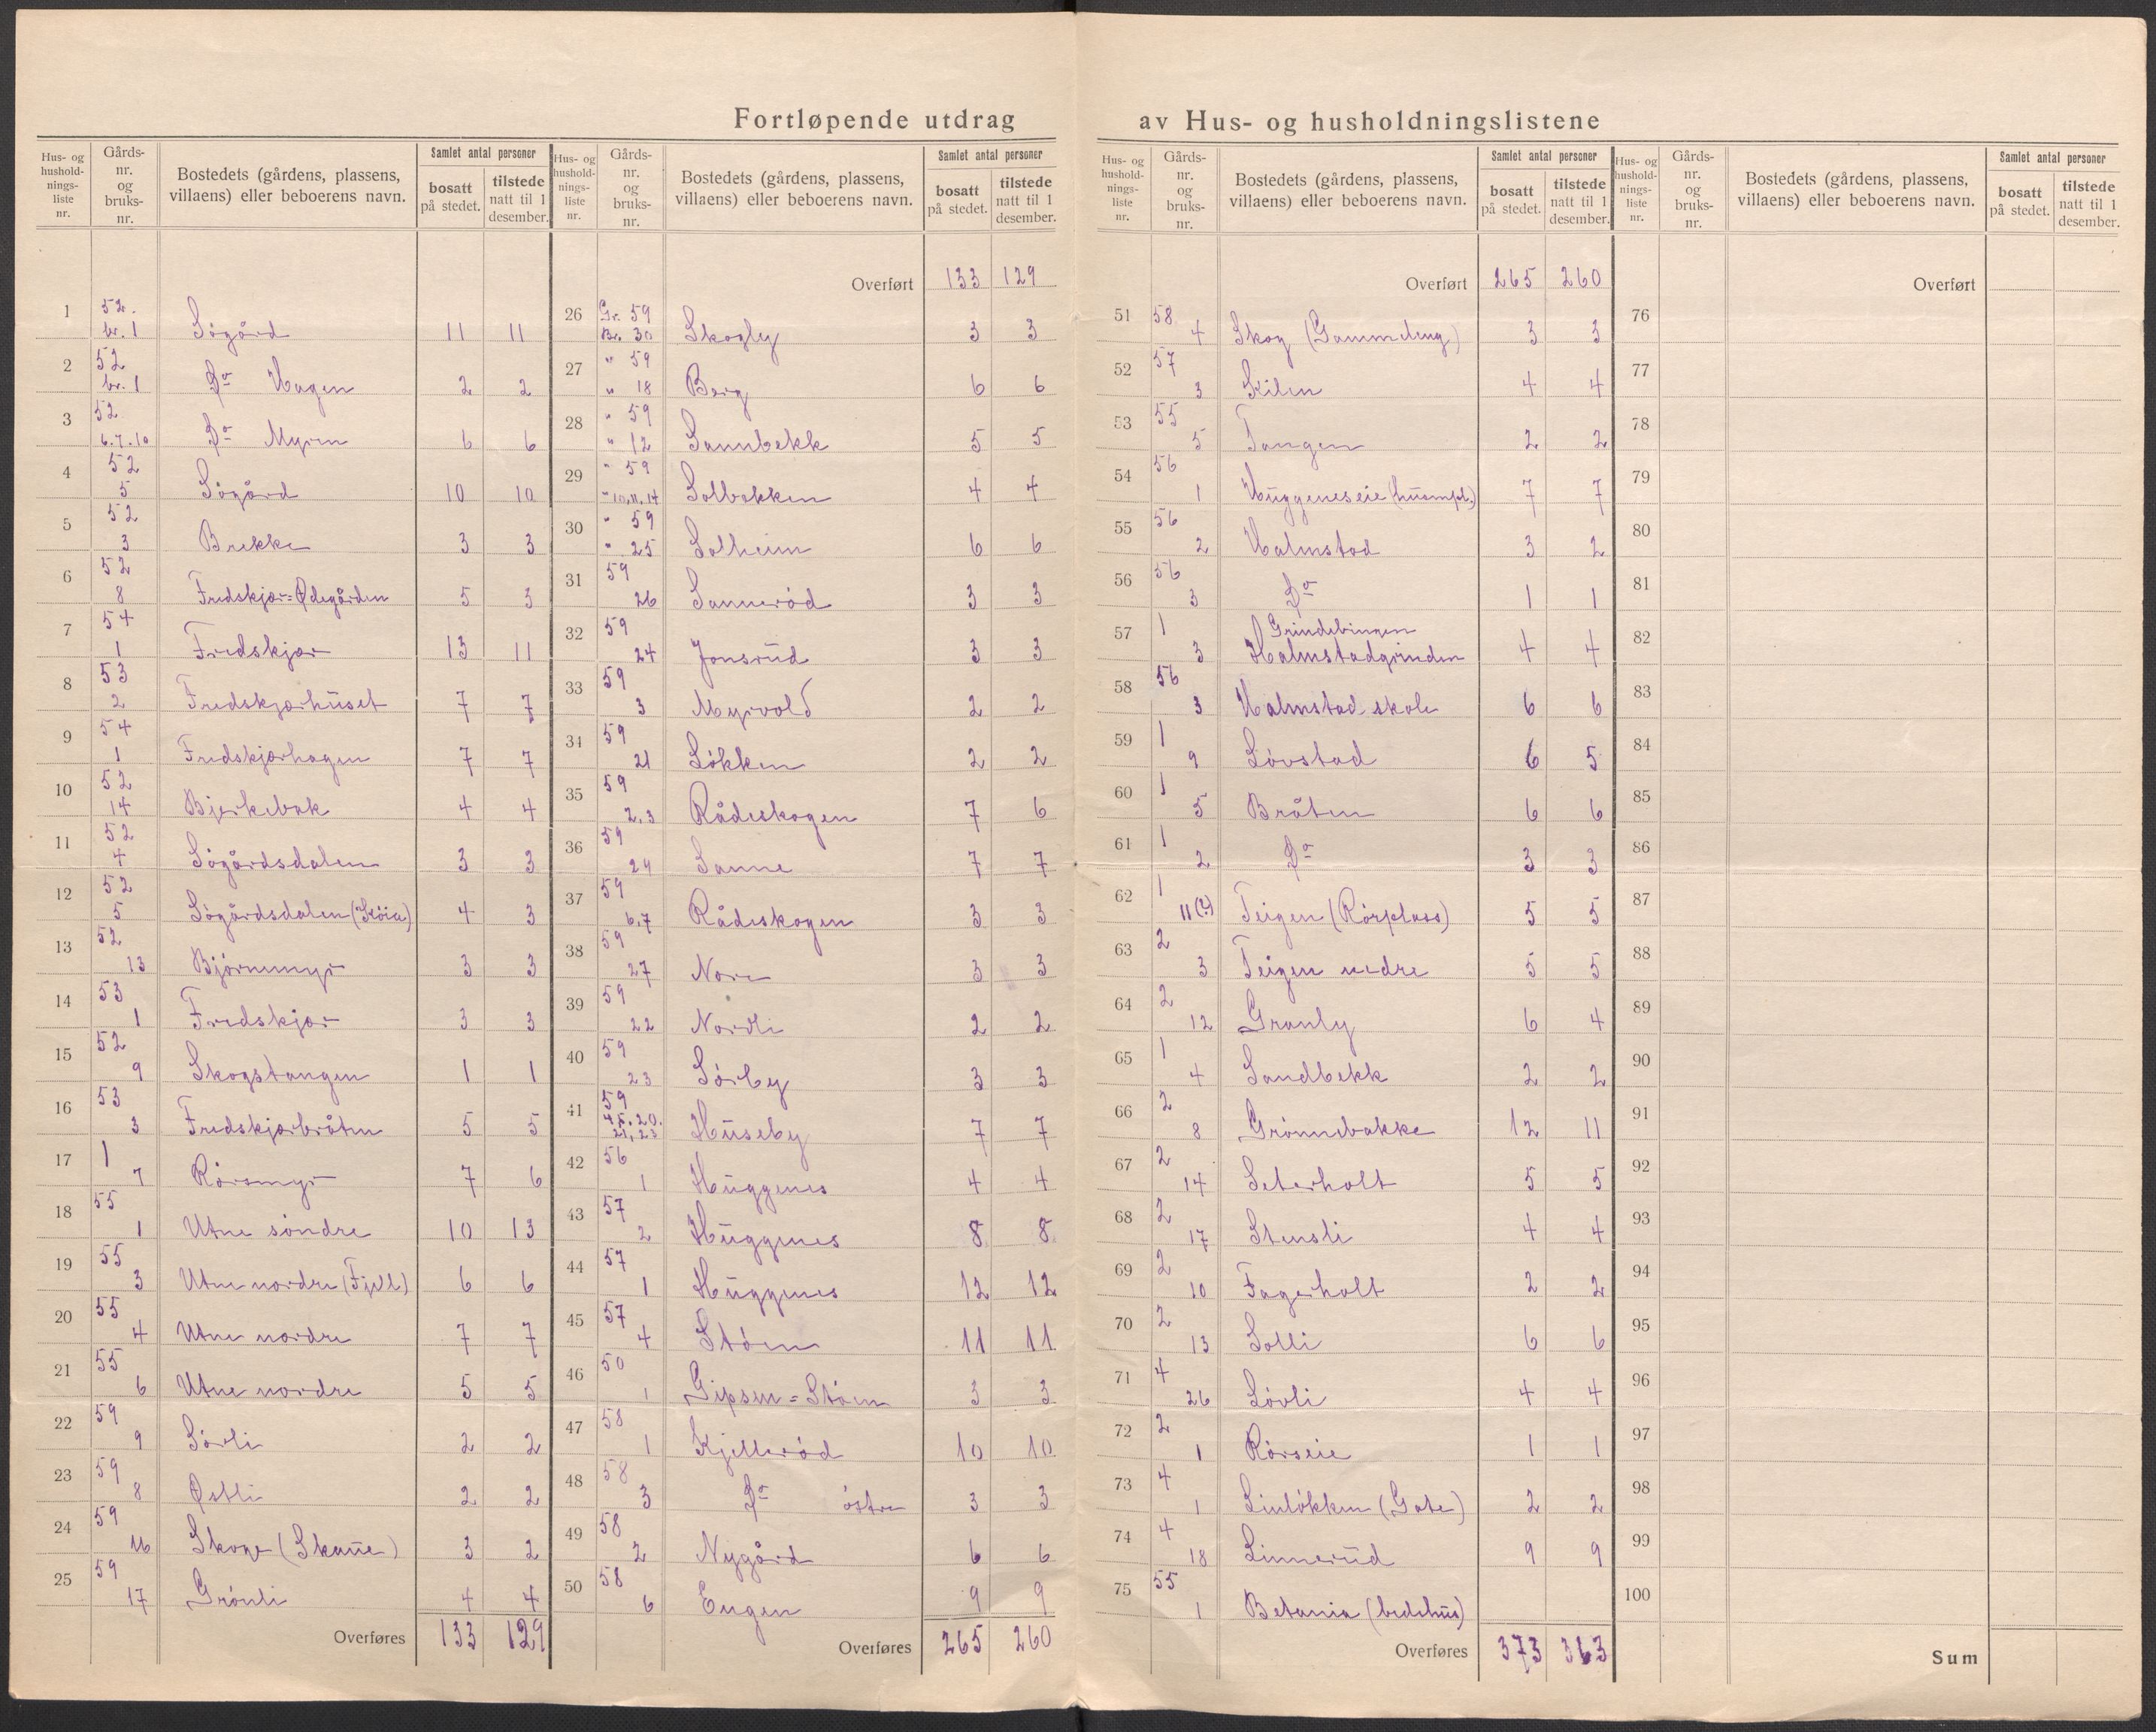 Fortløpende utdrag av Hus- og husholdningslistene
Hus- og husholdningsliste nr. | Gårds-nr. og bruks-nr. | Bostedets (gårdens, plassens, villaens) eller beboerens navn. | Samlet antal personer | bosatt på stedet. | tilstede natt til 1 desember.
1 | 52. br. 1 | Sögård | 11 | 11
2 | 52 br. 1 | Do Hagen | 2 | 2
3 | 52 6.7.10 | Do Myren | 6 | 6
4 | 52 5 | Sögård | 10 | 10
5 | 52 3 | Brekke | 3 | 3
6 | 52 8 | Fredskjær=Ødegården | 5 | 3
7 | 54 1 | Fredskjær | 13 | 11
8 | 53 2 | Fredskjærhuset | 7 | 7
9 | 54 1 | Fredskjærhagen | 7 | 7
10 | 52 14 | Bjerkebæk | 4 | 4
11 | 52 4 | Sögårdsdalen | 3 | 3
12 | 52 5 | Sögårdsdalen (Köia) | 4 | 3
13 | 52 13 | Björnmyr | 3 | 3
14 | 53 1 | Fredskjær | 3 | 3
15 | 52 9 | Skogstangen | 1 | 1
16 | 53 3 | Fredskjærbråten | 5 | 5
17 | 1 7 | Rörsmyr | 7 | 6
18 | 55 1 | Utne söndre | 10 | 13
19 | 55 3 | Utne nordre (Fjell) | 6 | 6
20 | 55 4 | Utne nordre | 7 | 7
21 | 55 6 | Utne nordre | 5 | 5
22 | 59 9 | Sörli | 2 | 2
23 | 59 8 | Østli | 2 | 2
24 | 59 16 | Skoge (Skaue) | 3 | 2
25 | 59 17 | Grönli | 4 | 4
Overføres | 133 | 129
Hus- og husholdningsliste nr. | Gårds-nr. og bruks-nr. | Bostedets (gårdens, plassens, villaens) eller beboerens navn. | Samlet antal personer | bosatt på stedet. | tilstede natt til 1 desember.
Overført | 133 | 129
26 | Gr. 59 Br. 30 | Skogly | 3 | 3
27 | " 59 " 18 | Berg | 6 | 6
28 | " 59 " 12 | Sannbekk | 5 | 5
29 | " 59 " 10.11.14 | Solbakken | 4 | 4
30 | " 59 " 25 | Solheim | 6 | 6
31 | 59 26 | Sanneröd | 3 | 3
32 | 59 24 | Jonsrud | 3 | 3
33 | 59 3 | Myrvold | 2 | 2
34 | 59 21 | Lökken | 2 | 2
35 | 59 2,3 | Rådeskogen | 7 | 6
36 | 59 24 | Sanne | 7 | 7
37 | 59 6,7 | Rådeskogen | 3 | 3
38 | 59 27 | Nore | 3 | 3
39 | 59 22 | Nordli | 2 | 2
40 | 59 23 | Sörby | 3 | 3
41 | 59 4.5.20. 21,23 | Huseby | 7 | 7
42 | 56 1 | Huggenes | 4 | 4
43 | 57 2 | Huggenes | 8 | 8
44 | 57 1 | Huggenes | 12 | 12
45 | 57 4 | Stöen | 11 | 11
46 | 50 1 | Gipsen = Stöen | 3 | 3
47 | 58 1 | Kjelleröd | 10 | 10
48 | 58 3 | Do östre | 3 | 3
49 | 58 2 | Nygård | 6 | 6
50 | 58 6 | Engen | 9 | 9
Overføres | 265 | 260
Hus- og husholdningsliste nr. | Gårds-nr. og bruks-nr. | Bostedets (gårdens, plassens, villaens) eller beboerens navn. | Samlet antal personer | bosatt på stedet. | tilstede natt til 1 desember.
Overført | 265 | 260
51 | 58 4 | Skog (Gammeleng) | 3 | 3
52 | 57 3 | Kilen | 4 | 4
53 | 55 5 | Tangen | 2 | 2
54 | 56 1 | Huggeneseie (husmpl.) | 7 | 7
55 | 56 2 | Halmstad | 3 | 2
56 | 56 3 | Do | 1 | 1
57 | 1 3 | Grindebingen Halmstadgrinden | 4 | 4
58 | 56 3 | Halmstad skole | 6 | 6
59 | 1 9 | Lövstad | 6 | 5
60 | 1 5 | Bråten | 6 | 6
61 | 1 2 | Do | 3 | 3
62 | 1 11(?) | Teigen (Rörplass) | 5 | 5
63 | 2 3 | Teigen nedre | 5 | 5
64 | 2 12 | Granly | 6 | 4
65 | 1 4 | Sandbekk | 2 | 2
66 | 2 8 | Grönnebakke | 12 | 11
67 | 2 14 | Seterholt | 5 | 5
68 | 2 17 | Stensli | 4 | 4
69 | 2 10 | Fagerholt | 2 | 2
70 | 2 13 | Solli | 6 | 6
71 | 4 26 | Lövli | 4 | 4
72 | 2 1 | Rörseie | 1 | 1
73 | 4 1 | Linlökken (Gate) | 2 | 2
74 | 4 18 | Linnerud | 9 | 9
75 | 55 1 | Betania (bedehus)
Overføres | 373 | 363
Hus- og husholdningsliste nr. | Gårds-nr. og bruks-nr. | Bostedets (gårdens, plassens, villaens) eller beboerens navn. | Samlet antal personer | bosatt på stedet. | tilstede natt til 1 desember.
Overført
76
77
78
79
80
81
82
83
84
85
86
87
88
89
90
91
92
93
94
95
96
97
98
99
100
Sum